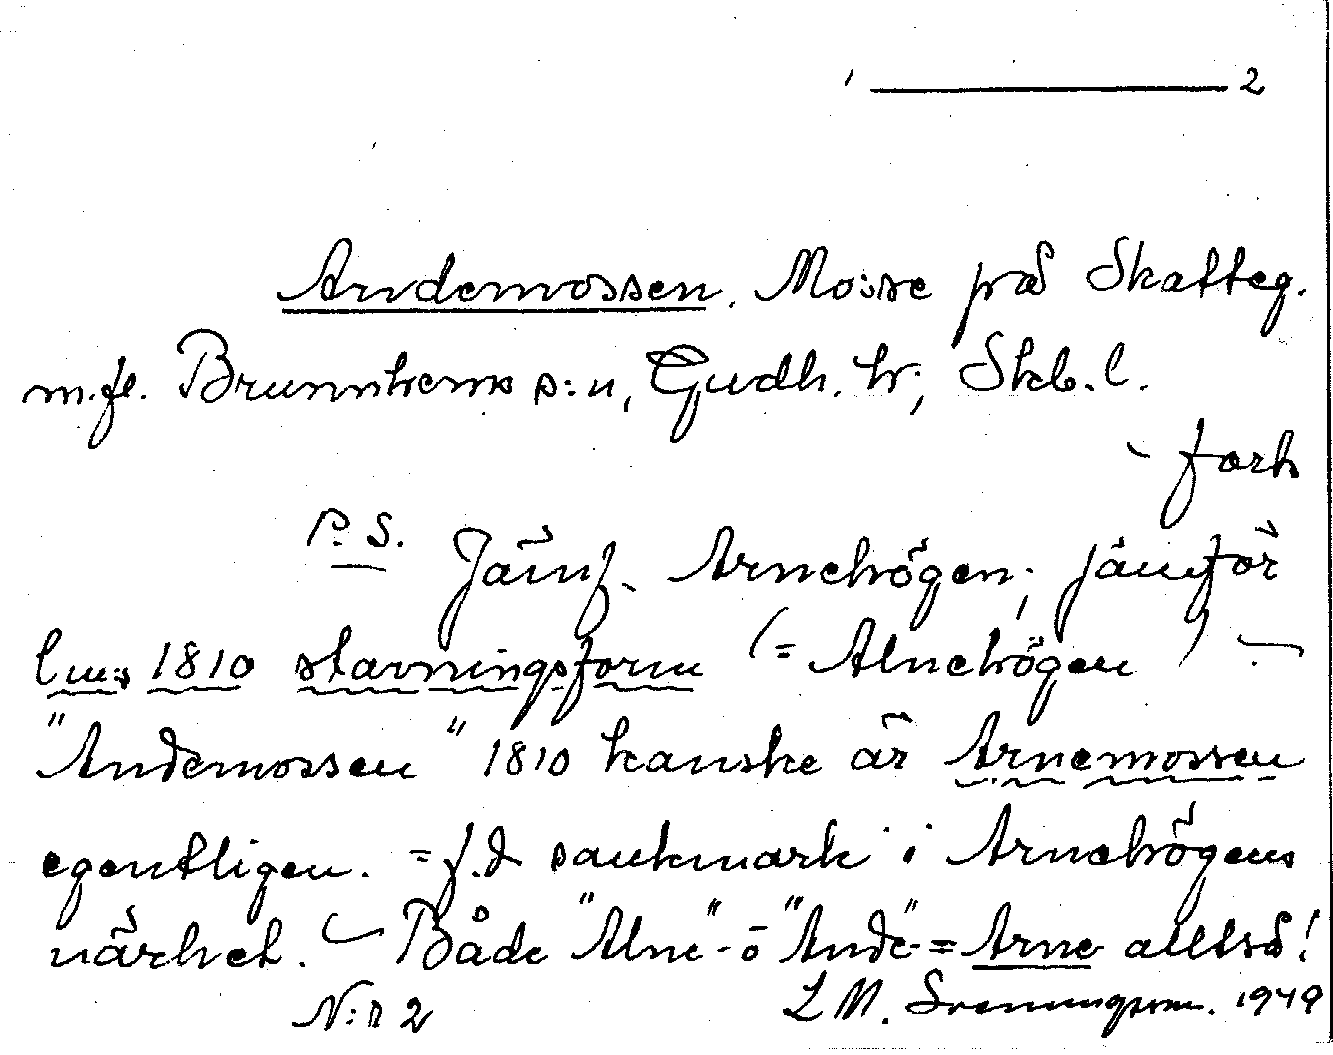 2
Andemossen. Mo:sse på Skatteg.
m.fl. Brunnhems s:n, Gudh. hr; Skb. l.
- forts
P.S. Jämf. Arnehögen; jämför
lms 1810 stavningsform (= Alnehögen) -
"Andemossen" 1810 kanske är Arnemossen
egentligen. = f.d sankmark i Arnehögens
närhet. - Både "Alne"- o "Ande"- = Arne alltså!
N:r 2 L M. Svenungsson. 1949